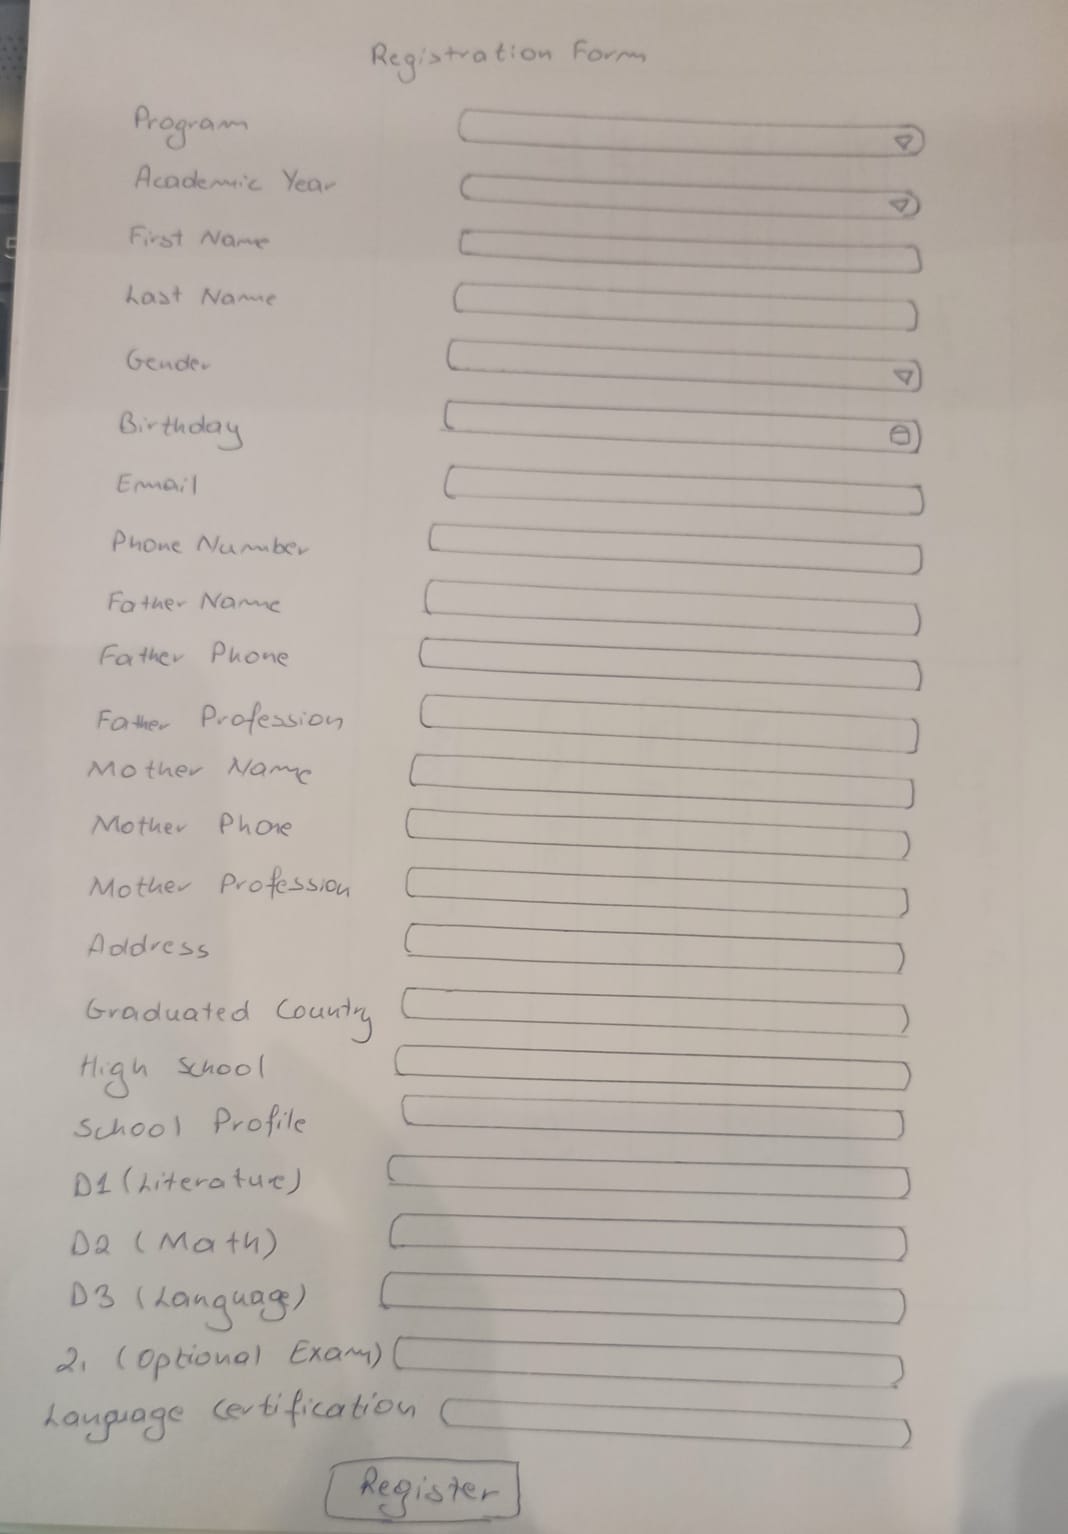 Registration Form
Program
Academic Year
First Name
Last Name
Gender
Birthday
Email
Phone Number
Father Name
Father Phone
Father Profession
Mother Name
Mother Phone
Mother Profession
Address
Graduated Country
High School
School Profile
D1 (Literature)
D2 (Math)
D3 (Language)
2. (Optional Exam)
Language Certification
Register